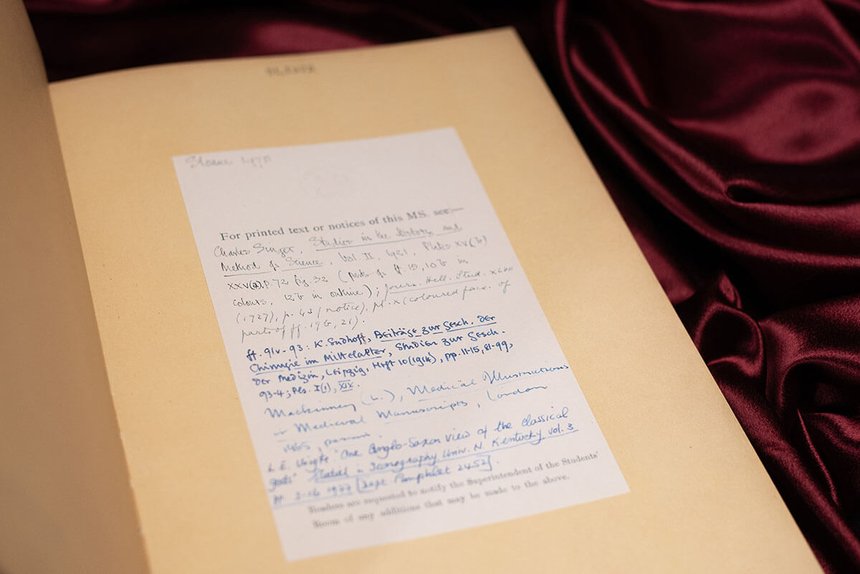 Sloane 1975
For printed text or notices of this MS. see:—
Charles Singer, Studies in the History and
Method of Science, Vol II, 1921, Plates XV(b)
XXV(a) p. 72 fig 32 (parts of ff 15, 10 b in
colours, 12 b in outline); Journ. Hell. Stud. xlvii
(1927), p. 43 (notice), pl. X (coloured facs. of
parts of ff 19 b, 21).
ff. 91v-93: K. Sudhoff, Beiträge zur Gesch. der
Chirurgie im Mittelalter, Studien zur Gesch.
der Medizin, Leipzig, Heft 10 (1914), pp. 11-15, 81-99,
93-4; Pls. I(1), XIX.
MacKinney (L.), Medical Illustrations
in Medieval Manuscripts, London
1965, passim.
L. E. Voigts "One Anglo-Saxon View of the classical
gods" Studies in Iconography Univ. N. Kentucky vol. 3
pp 3-16 1977 [Dept Pamphlet 2452]
Readers are requested to notify the Superintendent of the Students'
Room of any additions that may be made to the above.